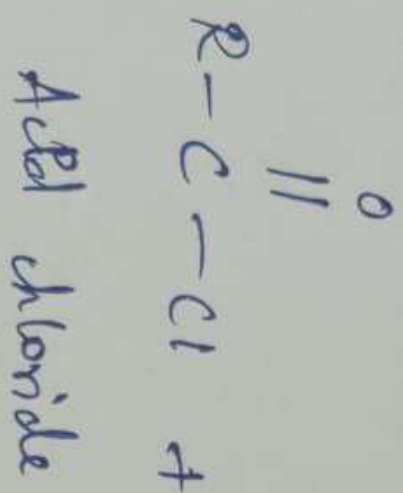 O
||
R - C - Cl +
Acid chloride